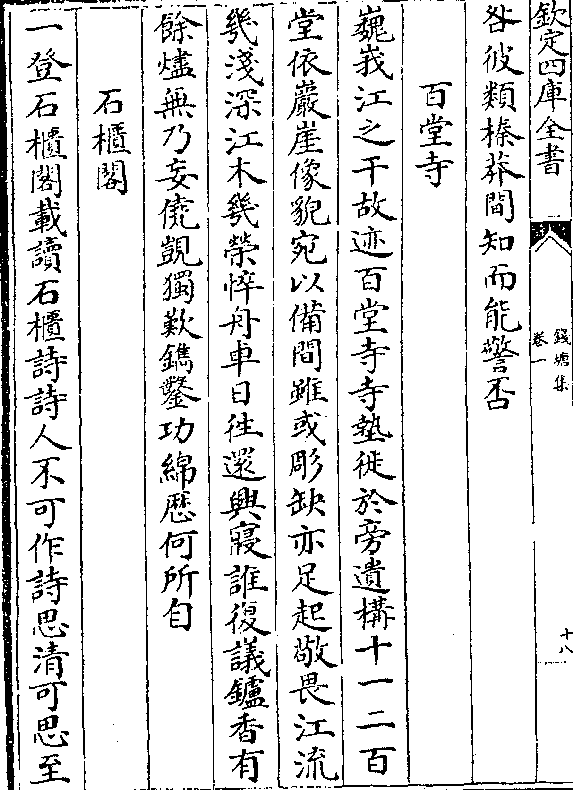 欽定四庫全書
錢塘集
卷一
十八
咎彼類榛莽間知而能警否
百堂寺
巍峩江之干故迹百堂寺寺墊徙於旁遺構十一二百
堂依巖崖像貌宛以備間雖或彫缺亦足起敬畏江流
幾淺深江木幾榮悴舟車日徃還興寢誰復議鑪香有
餘燼無乃妄僥覬獨歎鐫鑿功綿歷何所自
石櫃閣
一登石櫃閣載讀石櫃詩詩人不可作詩思清可思至